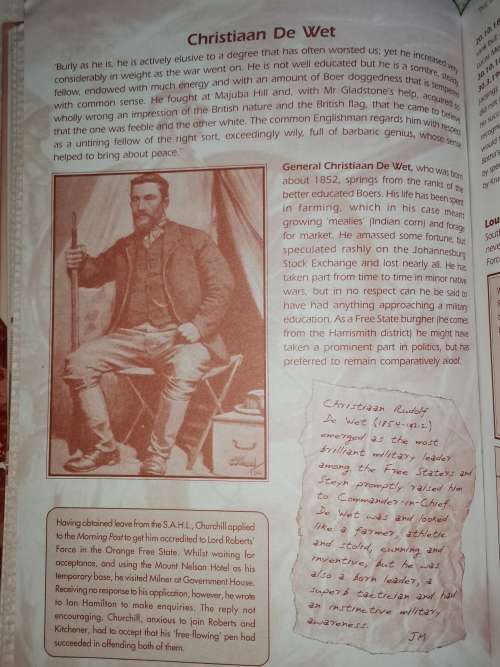 Christiaan De Wet
'Burly as he is, he is actively elusive to a degree that has often worsted us; yet he increased very
considerably in weight as the war went on. He is not well educated but he is a sombre, steady
fellow, endowed with much energy and with an amount of Boer doggedness that is tempered
with common sense. He fought at Majuba Hill and, with Mr Gladstone's help, acquired so
wholly wrong an impression of the British nature and the British flag, that he came to believe
that the one was feeble and the other white. The common Englishman regards him with respect
as a untiring fellow of the right sort, exceedingly wily, full of barbaric genius, whose sense
helped to bring about peace.'
General Christiaan De Wet, who was born
about 1852, springs from the ranks of the
better educated Boers. His life has been spent
in farming, which in his case meant
growing 'mealies' (Indian corn) and forage
for market. He amassed some fortune, but
speculated rashly on the Johannesburg
Stock Exchange and lost nearly all. He has
taken part from time to time in minor native
wars, but in no respect can he be said to
have had anything approaching a military
education. As a Free State burgher (he comes
from the Harrismith district) he might have
taken a prominent part in politics, but has
preferred to remain comparatively aloof.
Christiaan Rudolf
De Wet (1854-1922)
emerged as the most
brilliant military leader
among the Free Staters and
Steyn promptly raised him
to Commander-in-Chief.
De Wet was and looked
like a farmer, athletic
and stolid, cunning and
inventive, but he was
also a born leader, a
superb tactician and had
an instinctive military
awareness.
JM
Having obtained leave from the S.A.H.L., Churchill applied
to the Morning Post to get him accredited to Lord Roberts'
Force in the Orange Free State. Whilst waiting for
acceptance, and using the Mount Nelson Hotel as his
temporary base, he visited Milner at Government House.
Receiving no response to his application, however, he wrote
to Ian Hamilton to make enquiries. The reply not
encouraging, Churchill, anxious to join Roberts and
Kitchener, had to accept that his 'free-flowing' pen had
succeeded in offending both of them.